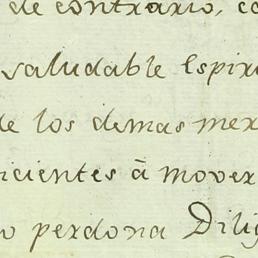 de contrario, co
saludable Espir
de los demas mer
icientes â mover
o perdona Dilig